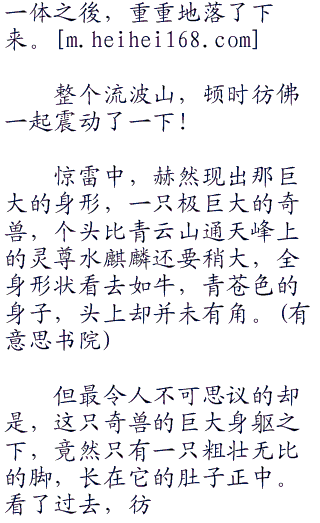 一体之後，重重地落了下
来。[m.heihei168.com]
整个流波山，顿时彷佛
一起震动了一下！
惊雷中，赫然现出那巨
大的身形，一只极巨大的奇
兽，个头比青云山通天峰上
的灵尊水麒麟还要稍大，全
身形状看去如牛，青苍色的
身子，头上却并未有角。(有
意思书院)
但最令人不可思议的却
是，这只奇兽的巨大身躯之
下，竟然只有一只粗壮无比
的脚，长在它的肚子正中。
看了过去，彷